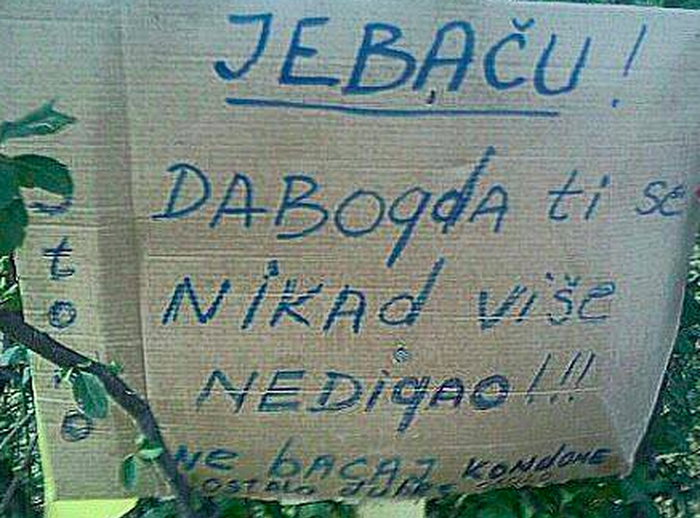 JEBAČU!
DABOgdA ti se
NiKAd više
NEDigAO!!!
Ne bACAJ KONdOME
OSTALO